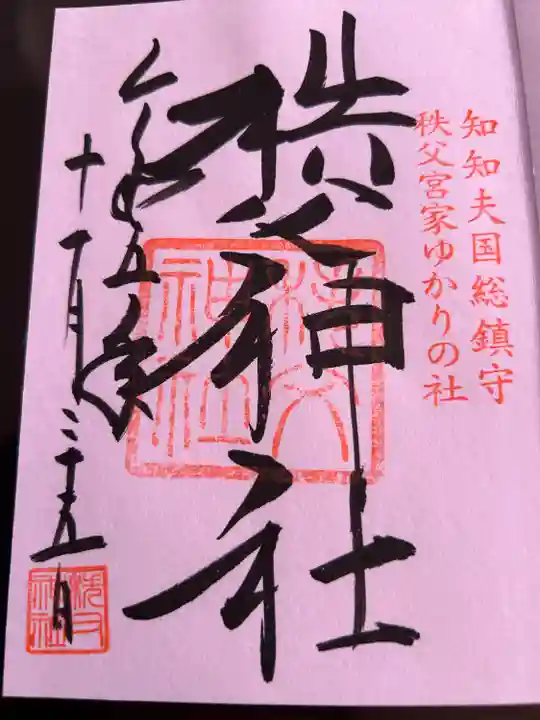 知知夫国総鎮守
秩父宮家ゆかりの社
秩父神社
令和五年
十一月二十五日
秩父神社